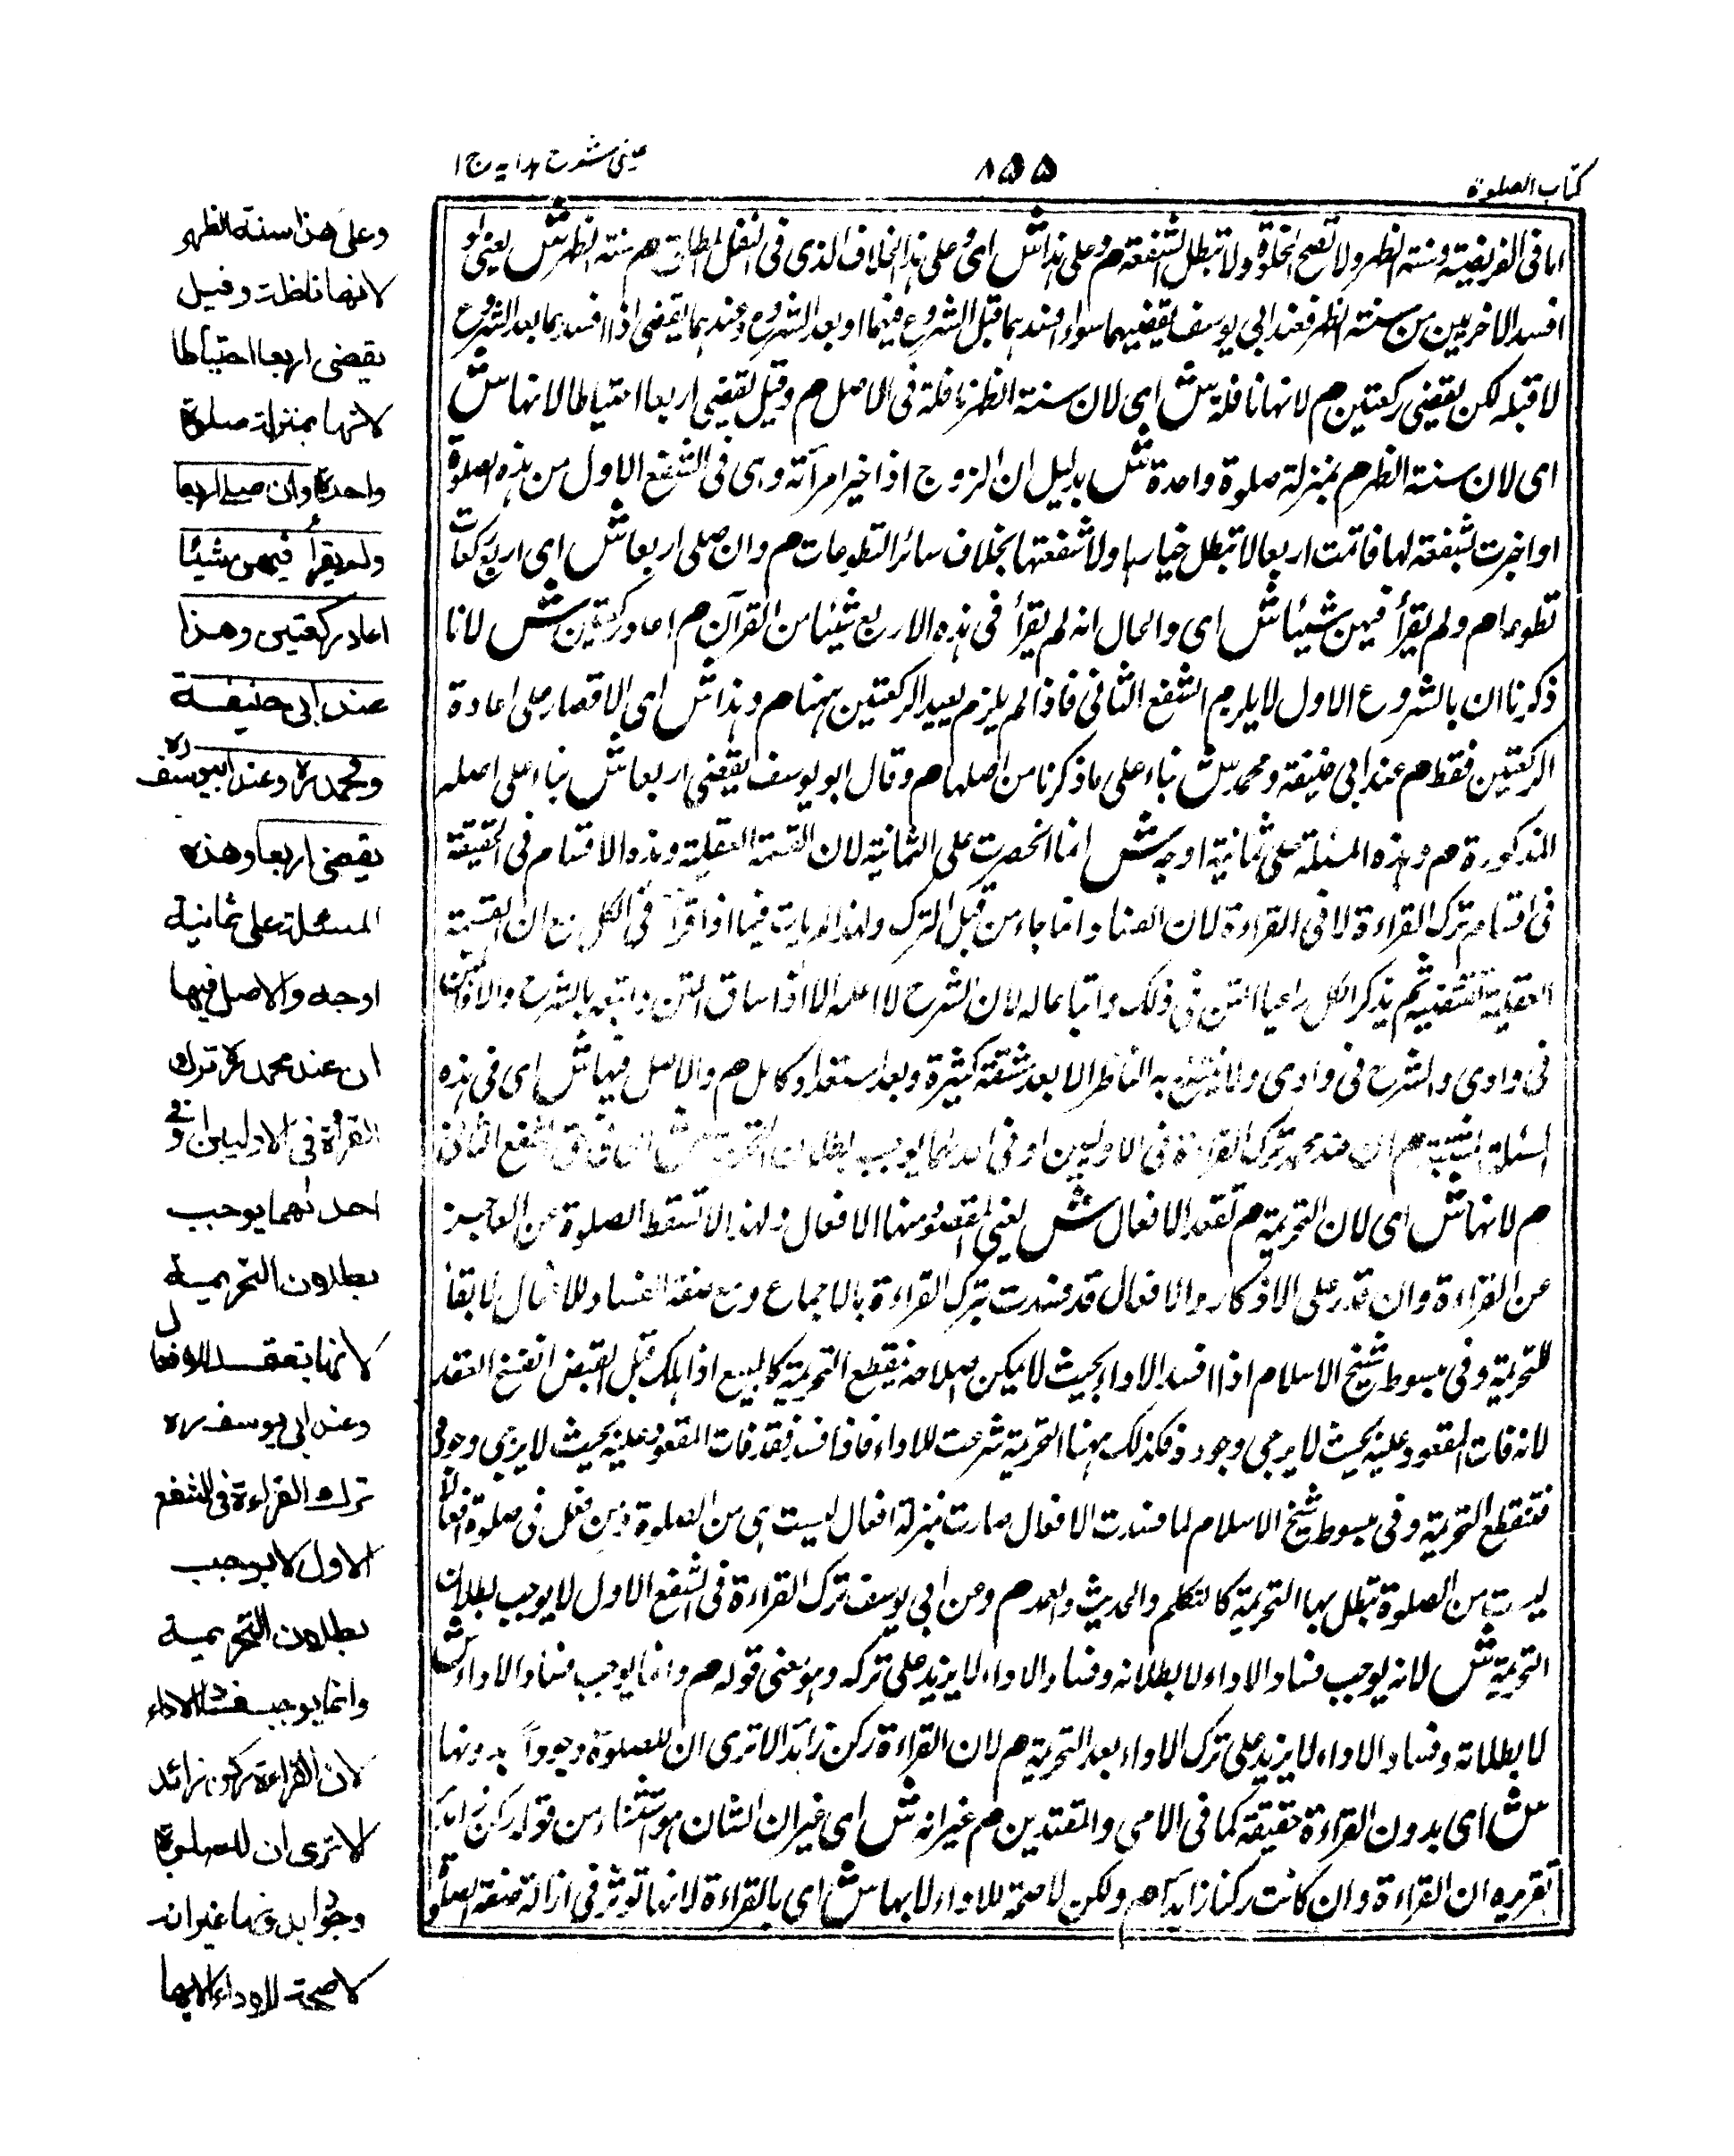 كتاب الصلوة
٨٥٥
عينى شرح هدايه ج ١
اما فى الفريضة وسنة الظهر ولا تصح الخلوة ولا تبطل الشفعة هم وعلى هذا ش اى وعلى هذا الخلاف الذى فى النفل المطلق هم سنة الظهر ش يعنى لو
افسد الاخريين من سنة الظهر فعند ابى يوسف يقضيهما سواء افسدهما قبل الشروع فيهما او بعد الشروع وعندهما يقضى اذا افسدهما بعد الشروع
لا قبله لكن يقضى ركعتين هم لانها نافلة ش اى لان سنة الظهر نافلة فى الاصل هم وقيل يقضى اربعا احتياطا لانها ش
اى لان سنة الظهر هم بمنزلة صلوة واحدة ش بدليل ان الزوج اذا خير امرأته وهى فى الشفع الاول من هذه الصلوة
او اخبرت بشفعة لها فاتمت اربعا لا تبطل خيارها ولا شفعتها بخلاف سائر التطوعات هم وان صلى اربعا ش اى اربع ركعات
تطوعا هم ولم يقرأ فيهن شيئا ش اى والحال انه لم يقرأ فى هذه الاربع شيئا من القرآن هم اعاد ركعتين ش لانا
ذكرنا ان بالشروع الاول لا يلزم الشفع الثانى فاذا لم يلزم يعيد الركعتين ههنا هم وهذا ش اى الاقتصار على اعادة
الركعتين فقط هم عند ابى حنيفة ومحمد ش بناء على ما ذكرنا من اصلهما هم وقال ابو يوسف يقضى اربعا ش بناء على اصله
المذكورة هم وهذه المسئلة على ثمانية اوجه ش انما انحصرت على الثمانية لان القسمة العقلية وهذه الاقسام فى الحقيقة
فى اقسام ترك القراءة لا فى القراءة لان الفساد انما جاء من قبل الترك ولهذا لم يات فيما اذا قرأ فى الكل مع ان القسمة
العقلية تقتضيه ثم يذكر الكل راعيا المتن فى ذلك واتباعا له لان الشرح لا اعلمه الا اذا ساق المتن واتبعه بالشرح والا فالمتن
فى وادى والشرح فى وادى ولا ينتفع به الناظر الا بعد مشقة كثيرة وبعد استعداد كامل هم والاصل فيها ش اى فى هذه
المسئلة هم ان عند محمد ترك القراءة فى الاوليين او فى احدٰهما يوجب بطلان التحريمة ش الشفع الثانى
هم لانها ش اى لان التحريمة هم تعقد الافعال ش يعنى المقصود منها الافعال ولهذا لا تسقط الصلوة عن العاجز
عن القراءة وان قدر على الاذكار والافعال قد فسدت بترك القراءة بالاجماع ومع صفة الفساد للافعال لا بقاء
للتحريمة وفى مبسوط شيخ الاسلام اذا افسد الاداء بحيث لا يمكن اصلاحه فيقطع التحريمة كالمبيع اذا هلك قبل القبض انفسخ العقد
لانه فات المعقود عليه بحيث لا يرجى وجوده فكذلك ههنا التحريمة شرعت للاداء فاذا فسد فقد فات المعقود عليه بحيث لا يرجى وجوده
فتنقطع التحريمة وفى مبسوط شيخ الاسلام لما فسدت الافعال صارت بمنزلة افعال ليست هى من الصلوة ومن فعل فى صلوة افعالا
ليست من الصلوة تبطل بها التحريمة كالتكلم والحديث والعمد هم وعن ابى يوسف ترك القراءة فى الشفع الاول لا يوجب بطلان
التحريمة ش لانه يوجب فساد الاداء لا بطلانه وفساد الاداء لا يزيد على تركه وهو معنى قوله هم وانما يوجب فساد الاداء ش
لا بطلانه وفساد الاداء لا يزيد على ترك الاداء بعد التحريمة هم لان القراءة ركن زائد الا ترى ان للصلوة وجوداً بدونها
ش اى بدون القراءة حقيقة كما فى الامى والمقتدين هم غير انه ش اى غير ان الشان هو استثناء من قوله ركن زائد
تقريره ان القراءة وان كانت ركنا زايدا هم ولكن لا صحة للاداء الا بها ش اى بالقراءة لانها توثر فى ازالة صفة الصلوة
وعلى هذا سنة الظهر
لانها نافلة وقيل
يقضى اربعا احتياطا
لانها بمنزلة صلوة
واحدة وان صلى اربعا
ولم يقرأ فيهن شيئا
اعاد ركعتين وهذا
عند ابى حنيفة
ومحمد ره وعند ابى يوسف ره
يقضى اربعا وهذه
المسئلة على ثمانية
اوجه والاصل فيها
ان عند محمد ره ترك
القرأة فى الاوليين او فى
احدٰهما يوجب
بطلان التحريمة
لانها تعقد للافعال
وعند ابى يوسف ره
ترك القراءة فى الشفع
الاول لا يوجب
بطلان التحريمة
وانما يوجب فساد الاداء
لان القراءة ركن زائد
الا ترى ان للصلوة
وجودا بدونها غير انه
لا صحة للاداء الا بها